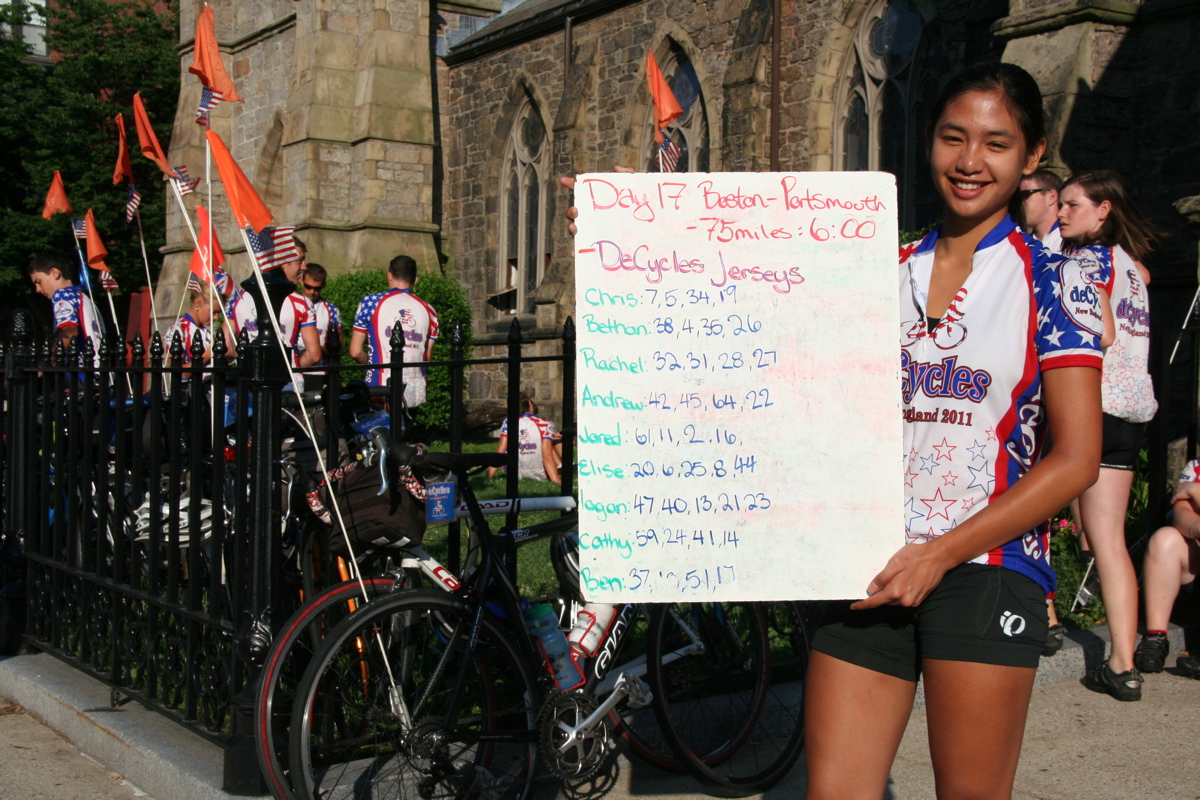 Day 17 Boston-Portsmouth
-75miles: 6:00
-DeCycles Jerseys
Chris: 7, 5, 34, 19
Bethan: 38, 4, 35, 26
Rachel: 32, 31, 28, 27
Andrew: 42, 45, 64, 22
Jared: 61, 11, 2, 16,
Elise: 20, 6, 25, 8, 44
logan: 47, 40, 13, 21, 23
Cathy: 59, 24, 41, 14
Ben: 37, 51, 17
Cycles
England 2011
GIANT